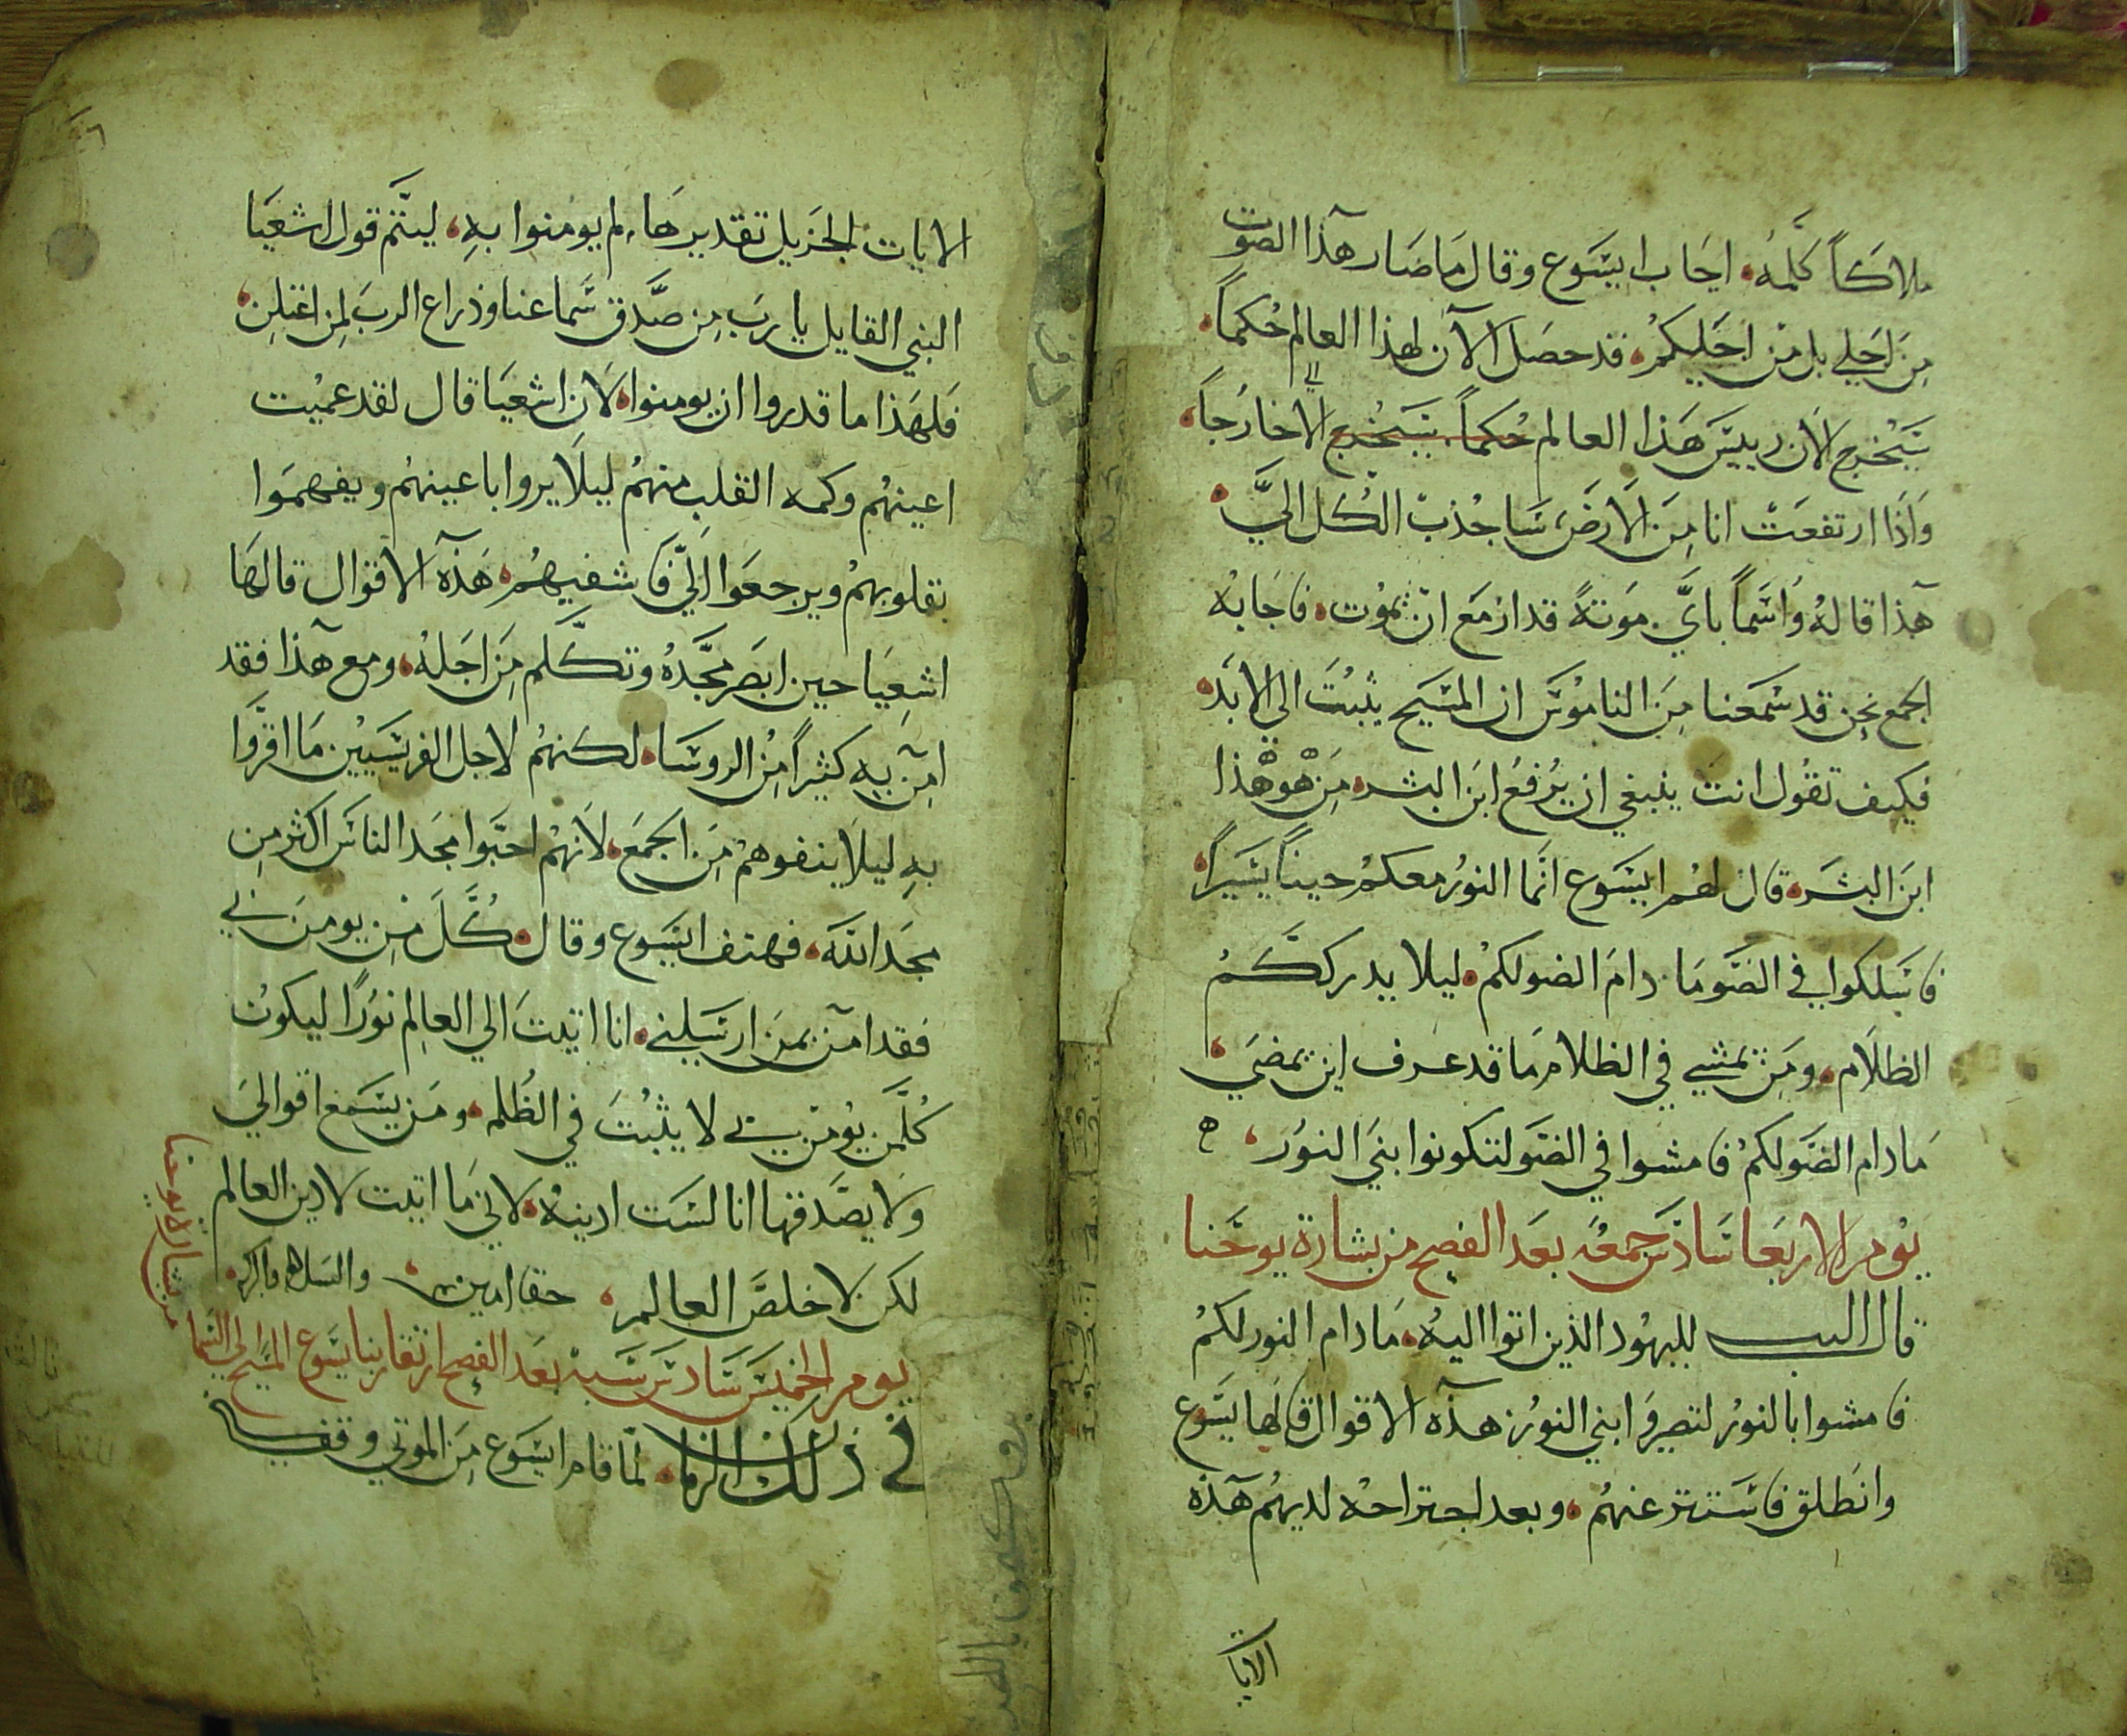 ملاكاً كلّمه. اجاب ايسوع وقال ما صار هذا الصوت
من اجلي بل من اجليكم. قد حصل الآن لهذا العالم حُكماً.
سيخرج الان رييس هذا العالم حُكماً. سيخرج الي لاخارجاً،
واذا ارتفعت انا من الارض ساجذب الكل اليَّ.
هذا قاله واسماً بايَّ موتهً قد ازمع ان يموت. فاجابه
الجمع نحن قد سمعنا من الناموس ان المسيح يثبت الي الابد.
فكيف تقول انت ينبغي ان يُرفع ابن البشر. من هو هذا
ابن البشر. قال لهم ايسوع انما النور معكم حيناً يسيراً.
فاسلكوا في الضو ما دام الضو لكم. ليلا يدرككم
الظلام. ومن يمشي في الظلام ما قد عرف اين يمضي.
ما دام الضو لكم فامشوا في الضو لتكونوا بني النور. ه
يوم الاربعا سادس جمعه بعد الفصح من بشارة يوحنا
قال الرب لليهود الذين اتوا اليه. ما دام النور لكم
فامشوا بالنور لتصيروا بني النور. هذه الاقوال قالها يسوع
وانطلق فاستتر عنهم. وبعد اجتراحه لديهم هذه
الايا
الايات الجزيل تقديرها، لم يومنوا به، ليتم قول اشعيا
النبي القايل يا رب من صدّق سماعنا وذراع الرب لمن اعتلن.
فلهذا ما قدروا ان يومنوا. لان اشعيا قال لقد عميت
اعينهم وكمه القلب منهم ليلا يروا باعينهم ويفهموا
بقلوبهم ويرجعوا اليّ فاشفيهم. هذه الاقوال قالها
اشعيا حين ابصر مجّده وتكّلم من اجله. ومع هذا فقد
امن به كثيراً من الروسا. لكنهم لاجل الفريسيين ما اقرّوا
به ليلا ينفوهم من الجمع. لانهم احبّوا مجد الناس اكثر من
مجد الله. فهتف ايسوع وقال. كُلّ من يومن بي
فقد امن بمن ارسلني. انا اتيت الي العالم نورًا ليكون
كُلّمن يومن بي لا يثبت في الظُلمه. ومن يسمع اقوالي
ولا يصّدقها انا لست ادينه. لاني ما اتيت لادين العالم
لكن لاخلص العالم. حقا امين والسلام فاكره
يوم الخميس سادس سبه بعد الفصح ارتقا ربنا يسوع المسيح الي السما
من بشارة يوحنا
في ذلك الزمان. لمّا قام ايسوع من الموتي وقف